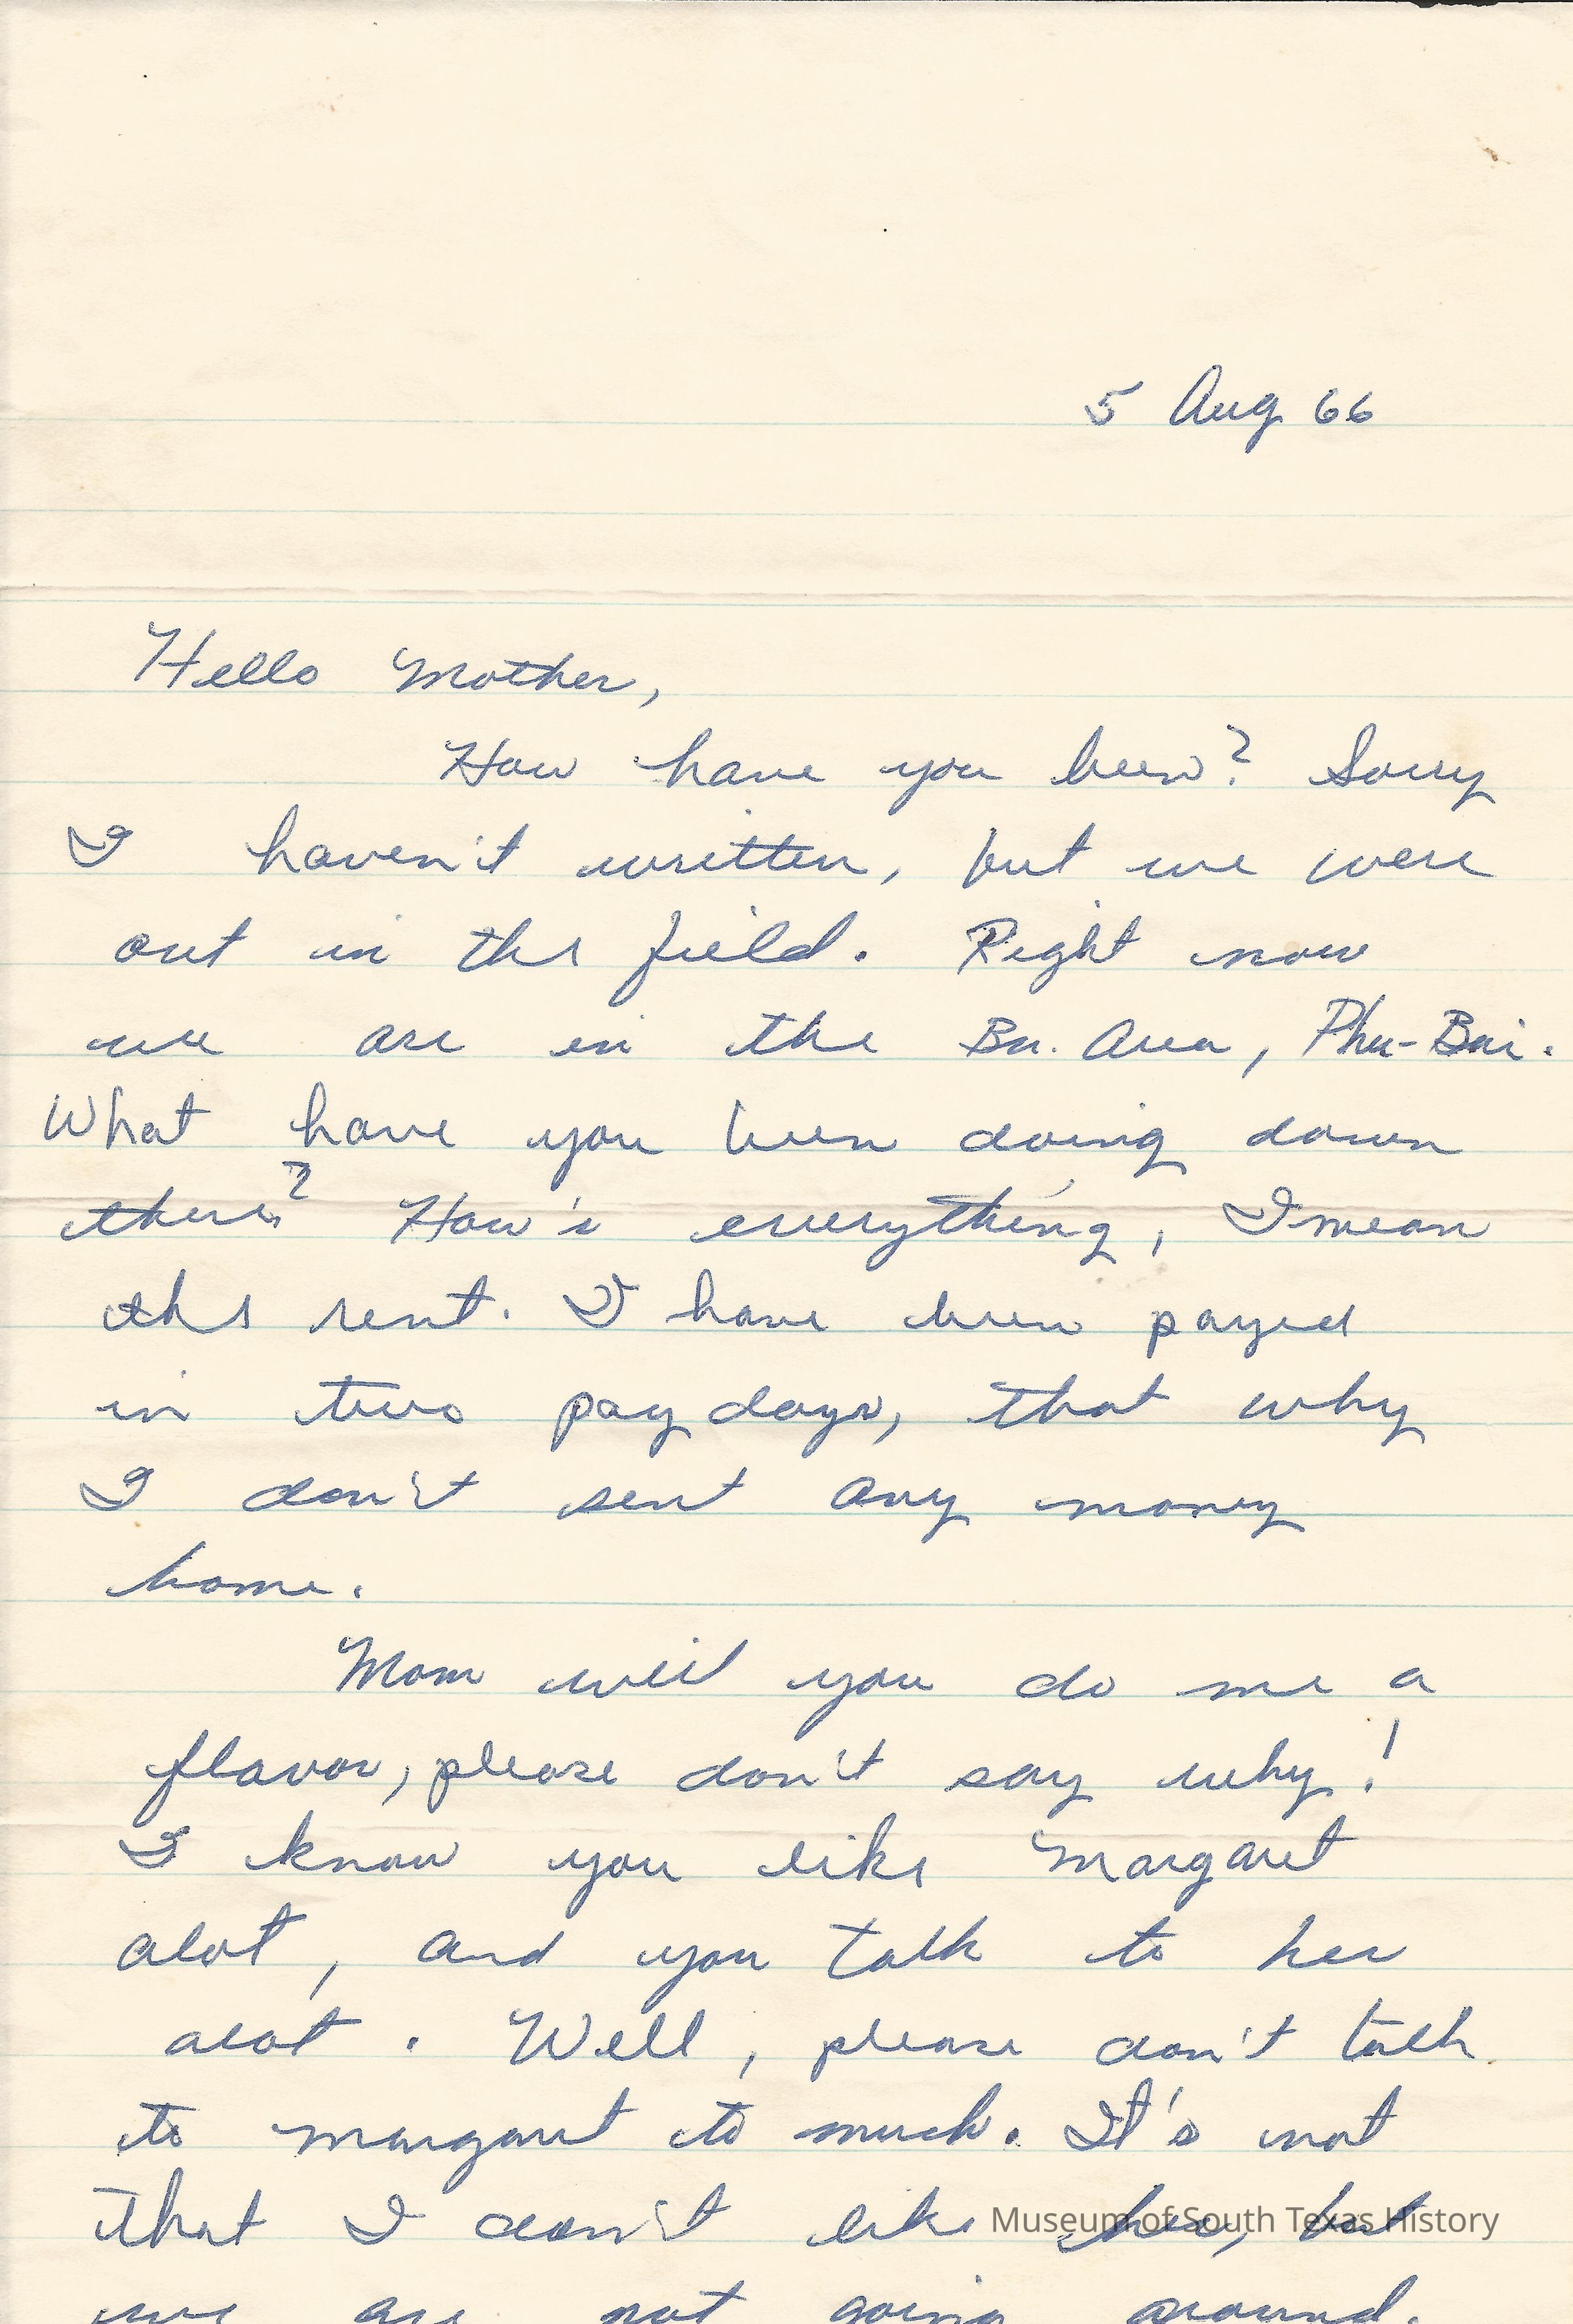 5 Aug 66
Hello Mother,
How have you been? Sorry
I haven't written, but we were
out in the field. Right now
we are in the Bn. Area, Phu-Bai.
What have you been doing down
there? How's everything, I mean
the rent. I have been payed
in two pay days, that why
I don't sent any money
home.
Mom will you do me a
flavor, please don't say why!
I know you like Margaret
alot, and you talk to her
alot. Well, please don't talk
to margaret to much. It's not
that I don't like her, but
Museum of South Texas History
we are not going around.